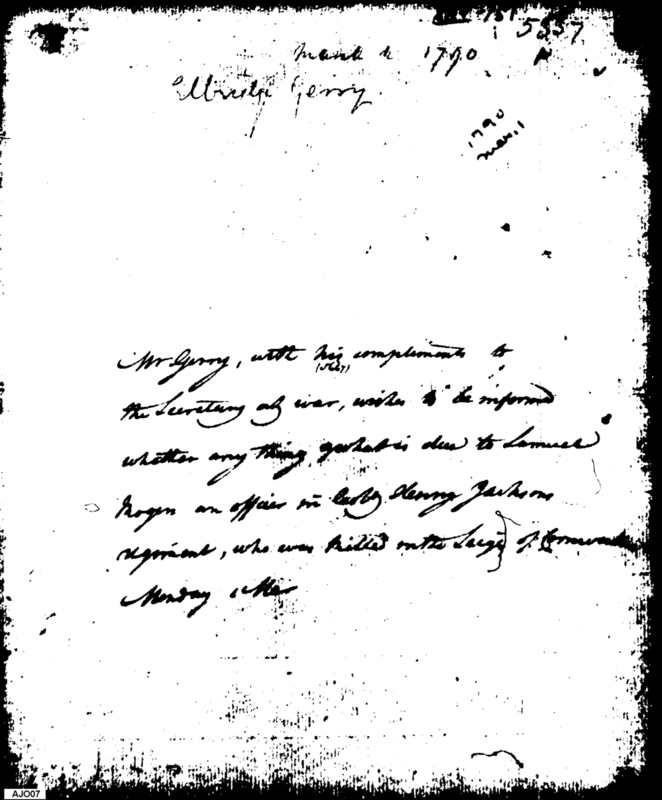 5557
March 1 1790
Elbridge Gerry.
1790
Mar. 1
Mr Gerry, with his compliments to
the Secretary of war, wishes to be informed
whether any thing & what is due to Samuel
an officer in Henry Jacksons
regiment, who was killed on the Seige of Cornwallis
Monday 1 Mar
AJO07